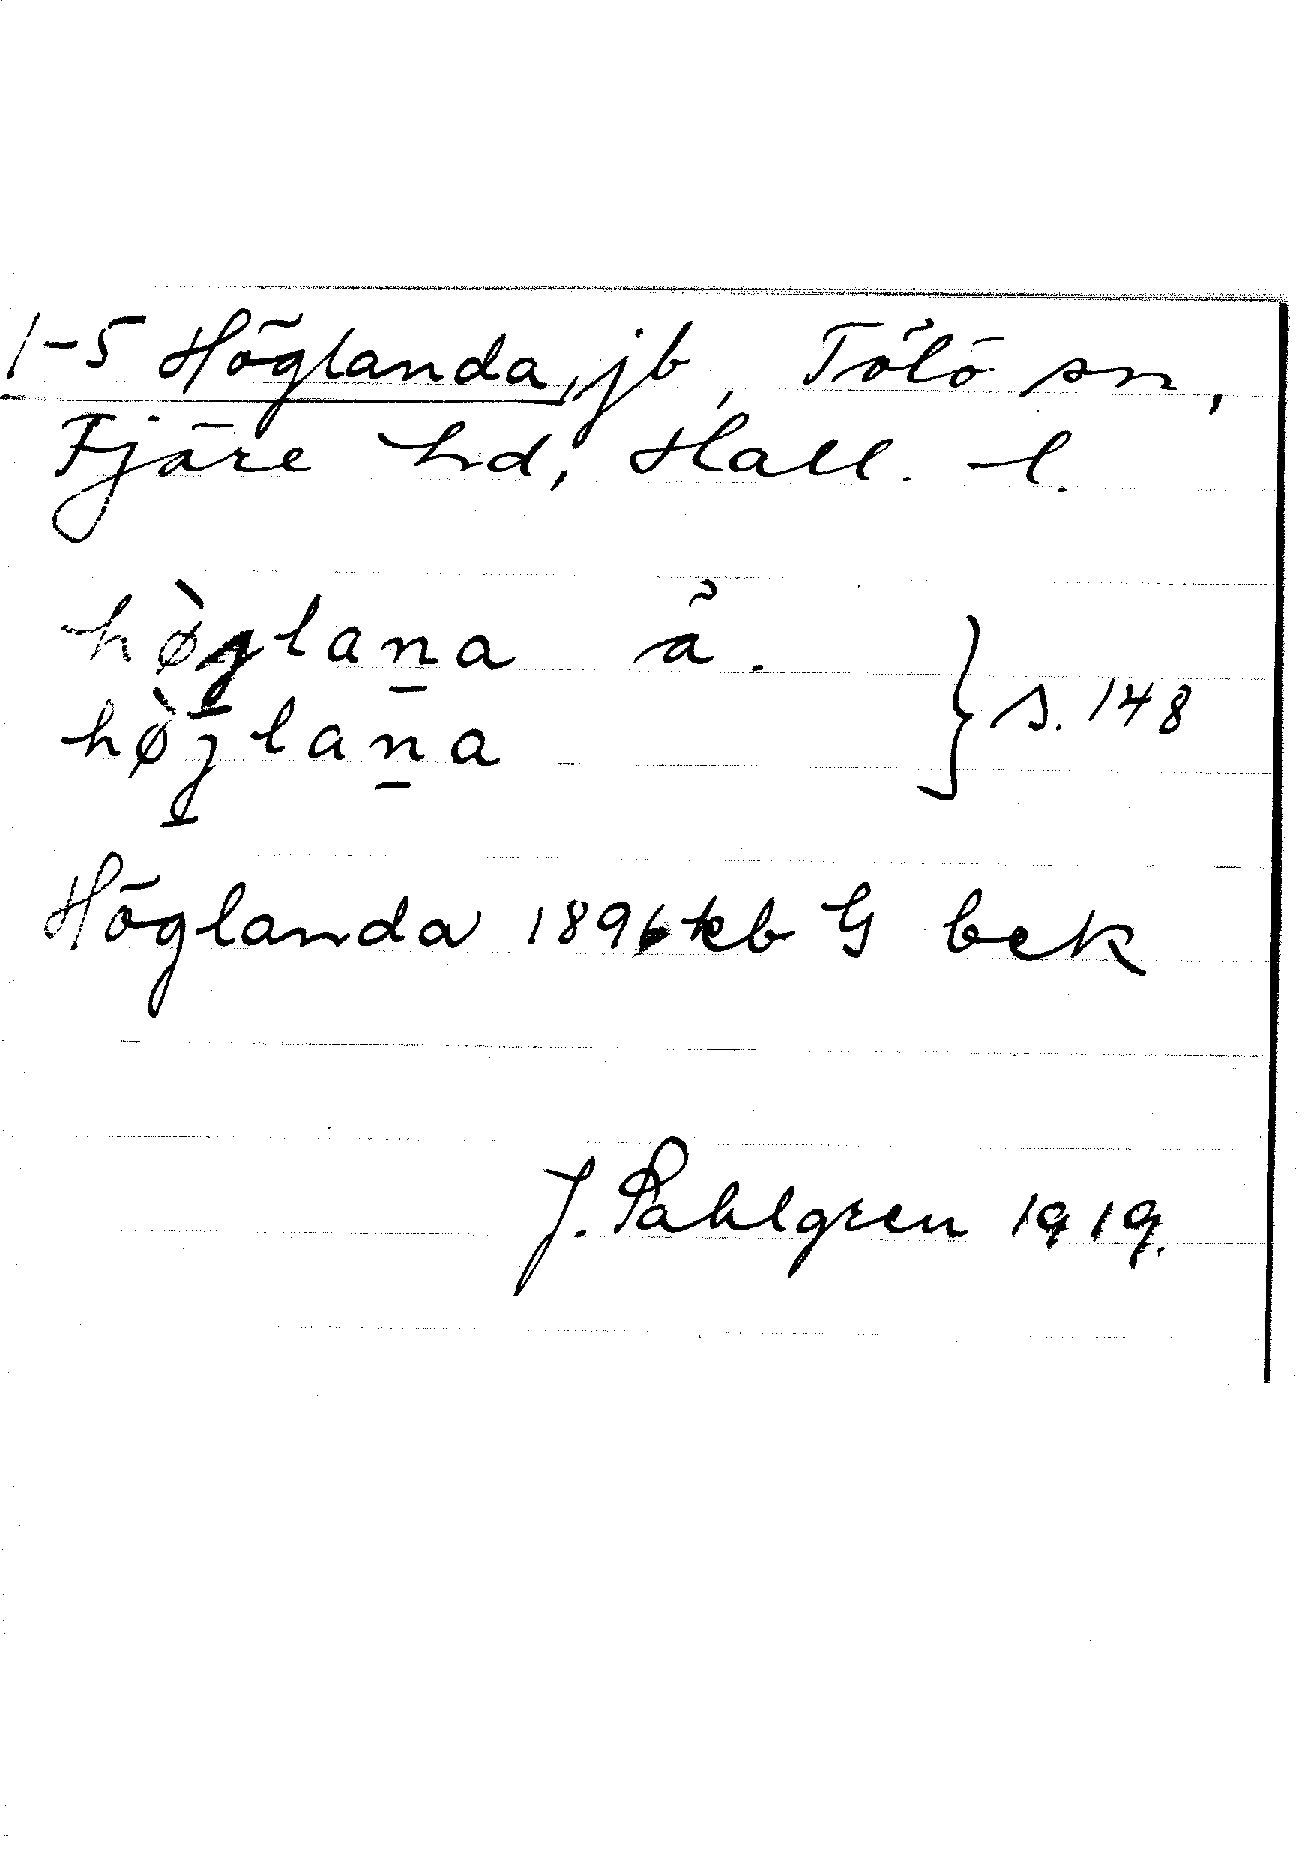 1-5 Höglanda, jb, Tölö sn,
Fjäre hd, Hall. l.
hø̀gla̱na å.
hø̀jla̱na } s. 148
Höglanda 1896 kb G bek
J. Sahlgren 1919.